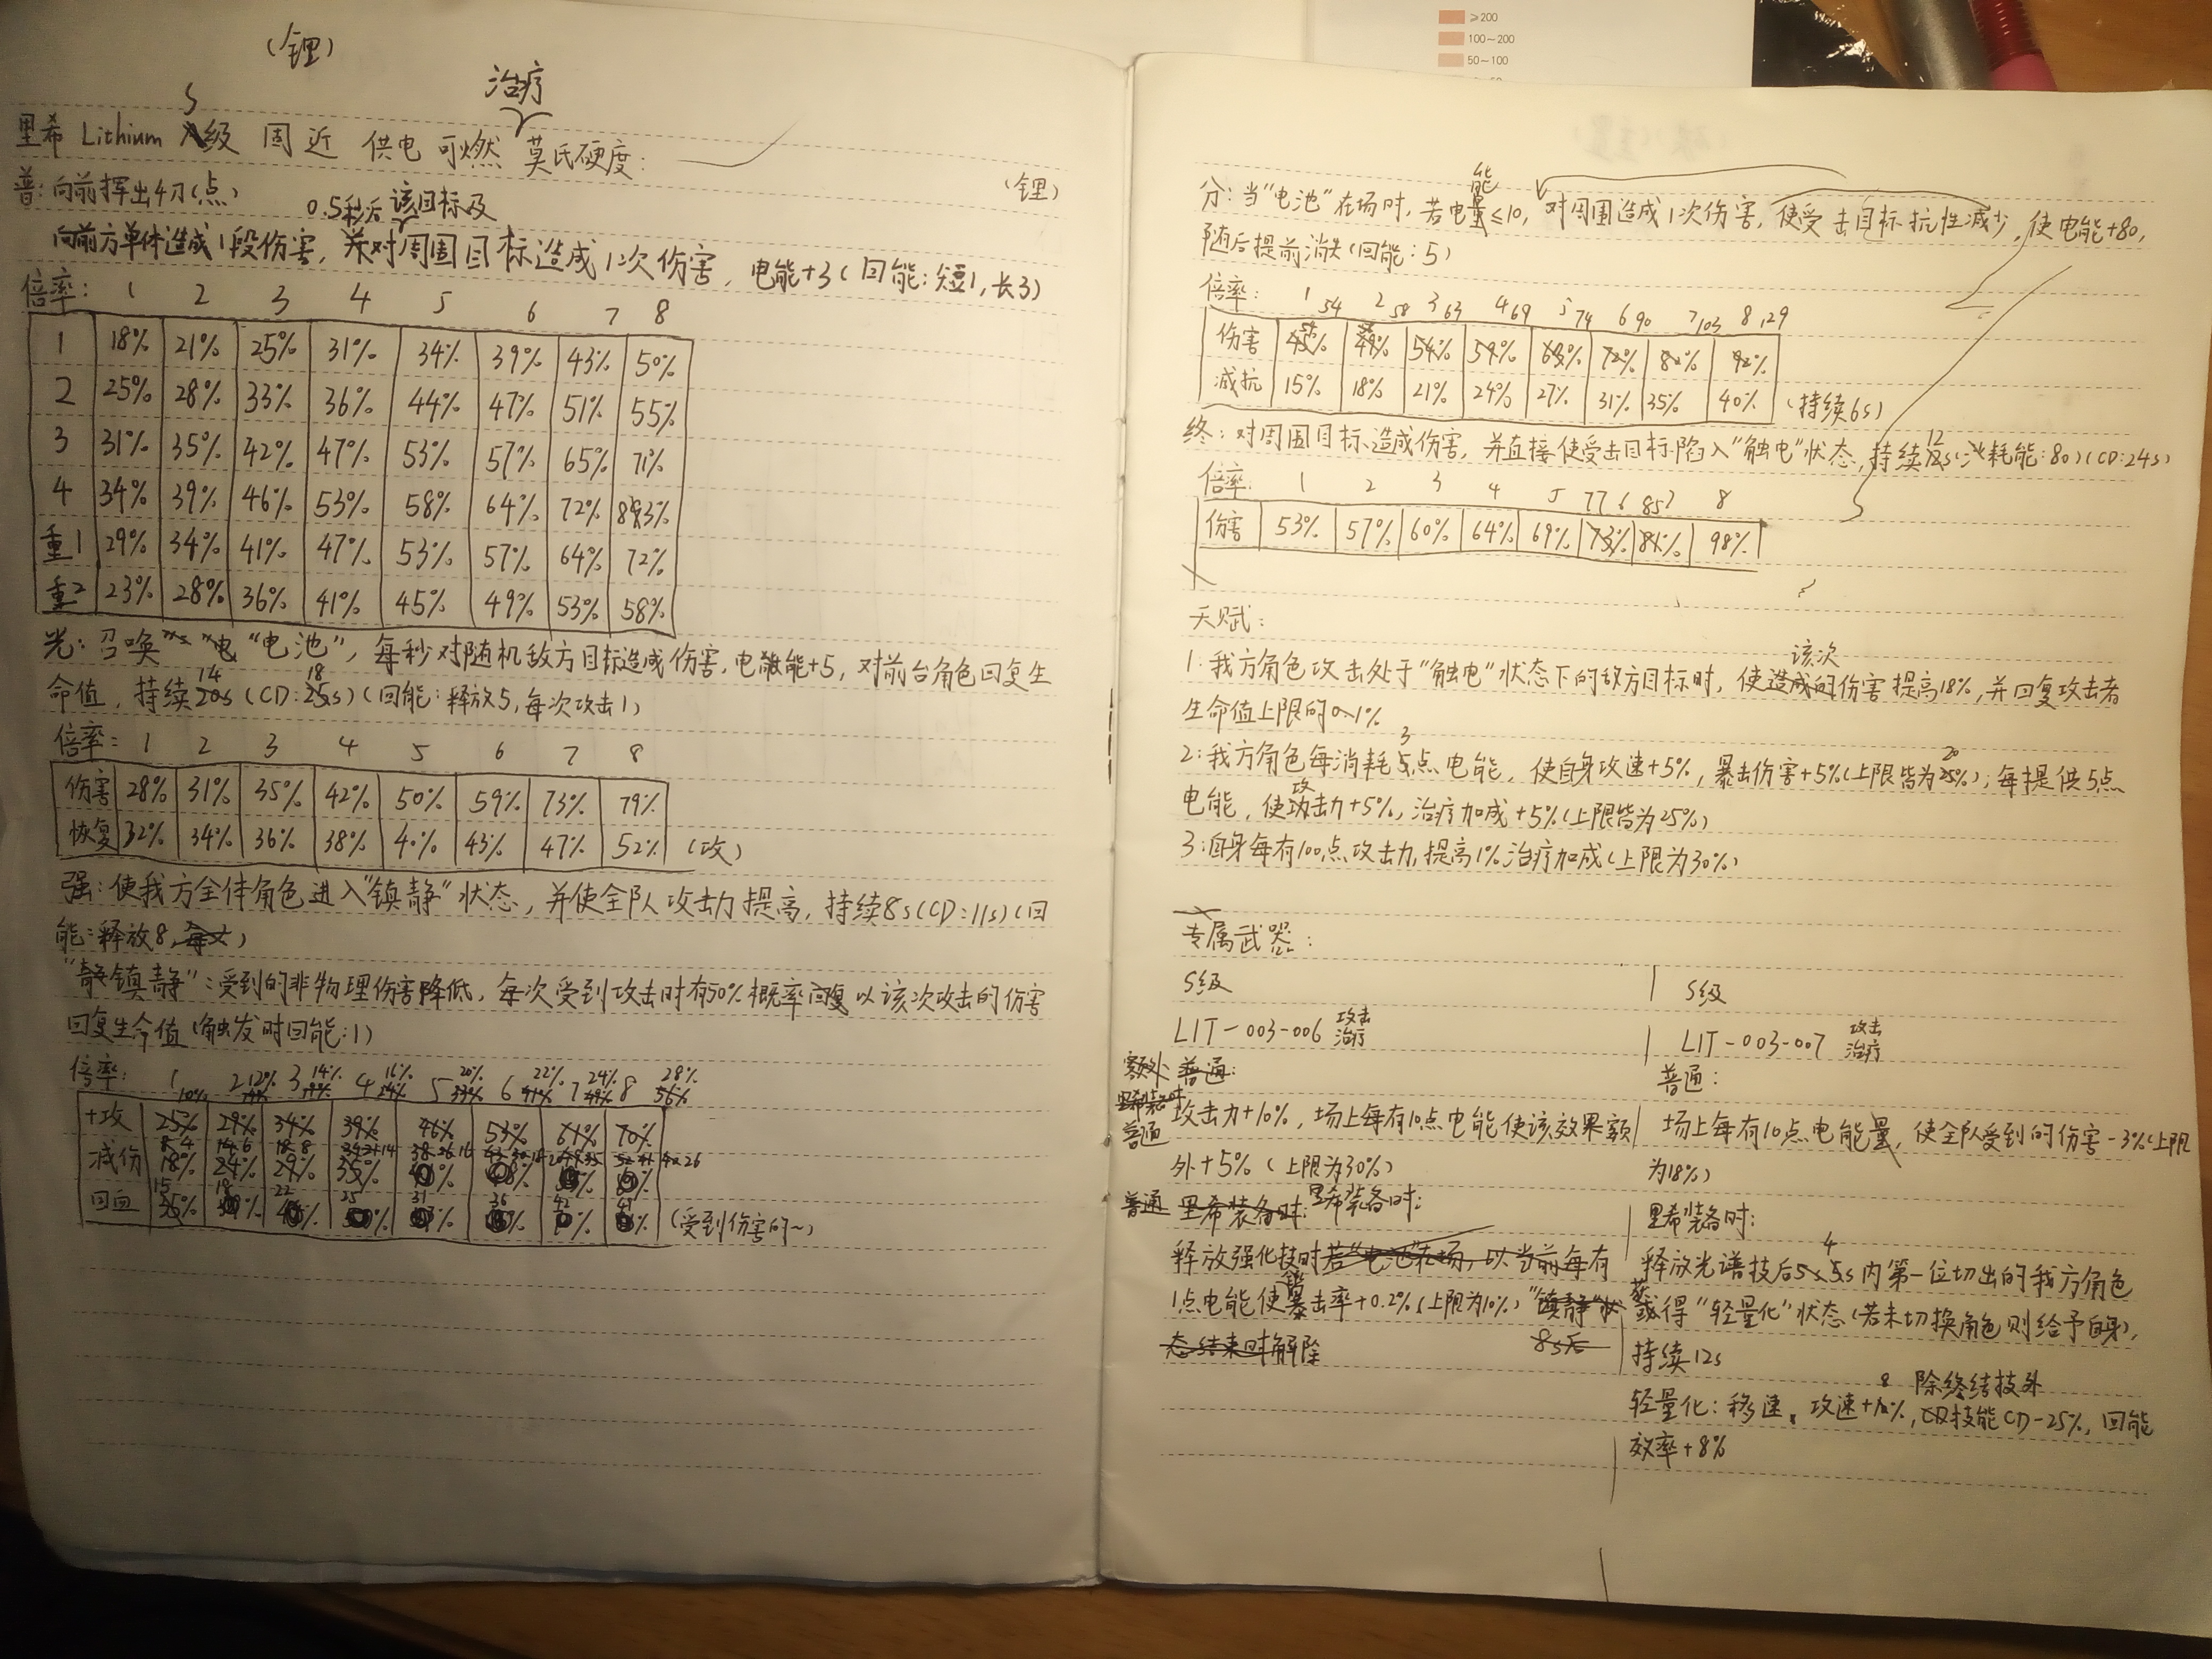 ≥200
100~200
50~100
(锂)
治疗
里希 Lithium S级 固 近 供电 可燃 莫氏硬度:
普:向前挥出4刀(点)
(锂)
0.5秒后 该目标及
向前方单体造成1段伤害,并对周围目标造成1次伤害,电能+3(回能:短1,长3)
倍率: 1 2 3 4 5 6 7 8
1 18% 21% 25% 31% 34% 39% 43% 50%
2 25% 28% 33% 36% 44% 47% 51% 55%
3 31% 35% 42% 47% 53% 57% 65% 71%
4 34% 39% 46% 53% 58% 64% 72% 83%
重1 29% 34% 41% 47% 53% 57% 64% 72%
重2 23% 28% 36% 41% 45% 49% 53% 58%
光:召唤“电池”,每秒对随机敌方目标造成伤害,电能+5,对前台角色回复生
14 18
命值,持续20s(CD:25s)(回能:释放5,每次攻击1)
倍率: 1 2 3 4 5 6 7 8
伤害 28% 31% 35% 42% 50% 59% 73% 79%
恢复 32% 34% 36% 38% 40% 43% 47% 52% (攻)
强:使我方全体角色进入“镇静”状态,并使全队攻击力提高,持续8s(CD:11s)(回
能:释放8,每次)
“镇静”:受到的非物理伤害降低,每次受到攻击时有50%概率 以该次攻击的伤害
回复生命值(触发时回能:1)
倍率: 1 2 3 4 5 6 7 8
10% 12% 14% 16% 20% 22% 24% 28%
+攻 25% 29% 34% 39% 46% 53% 61% 70%
减伤 18% 24% 29% 35%
15 18 22 25 31 36 42
回血 (受到伤害的~)
分:当“电池”在场时,若电能≤10,对周围造成1次伤害,使受击目标抗性减少,使电能+80,
随后提前消失(回能:5)
倍率: 1 54 2 58 3 63 4 69 5 74 6 90 7 103 8 129
伤害 45% 49% 54% 59% 63% 72% 82% 92%
减抗 15% 18% 21% 24% 27% 31% 35% 40% (持续6s)
终:对周围目标造成伤害,并直接使受击目标陷入“触电”状态,持续12s(耗能:80)(CD:24s)
倍率: 1 2 3 4 5 77 6 85 7 8
伤害 53% 57% 60% 64% 69% 73% 81% 98%
天赋:
该次
1:我方角色攻击处于“触电”状态下的敌方目标时,使造成的伤害提高18%,并回复攻击者
生命值上限的0.1%
3 20
2:我方角色每消耗5点电能,使自身攻速+5%,暴击伤害+5%(上限皆为25%);每提供5点
电能,使攻击力+5%,治疗加成+5%(上限皆为25%)
3:自身每有100点攻击力,提高1%治疗加成(上限为30%)
专属武器:
S级
LIT-003-006 攻击 治疗
额外 普通:
里希装备时
普通
攻击力+10%,场上每有10点电能使该效果额
外+5%(上限为30%)
普通 里希装备时: 里希装备时:
释放强化技时若“电池”在场,以当前每有
1点电能使暴击率+0.2%(上限为10%)“镇静”状
态结束时解除 8s后
S级
LIT-003-007 攻击 治疗
普通:
场上每有10点电能量,使全队受到的伤害-3%(上限
为18%)
里希装备时:
4
释放光谱技后5s内第一位切出的我方角色
获得“轻量化”状态(若未切换角色则给予自身),
持续12s
8 除终结技外
轻量化:移速、攻速+10%,技能CD-25%,回能
效率+8%